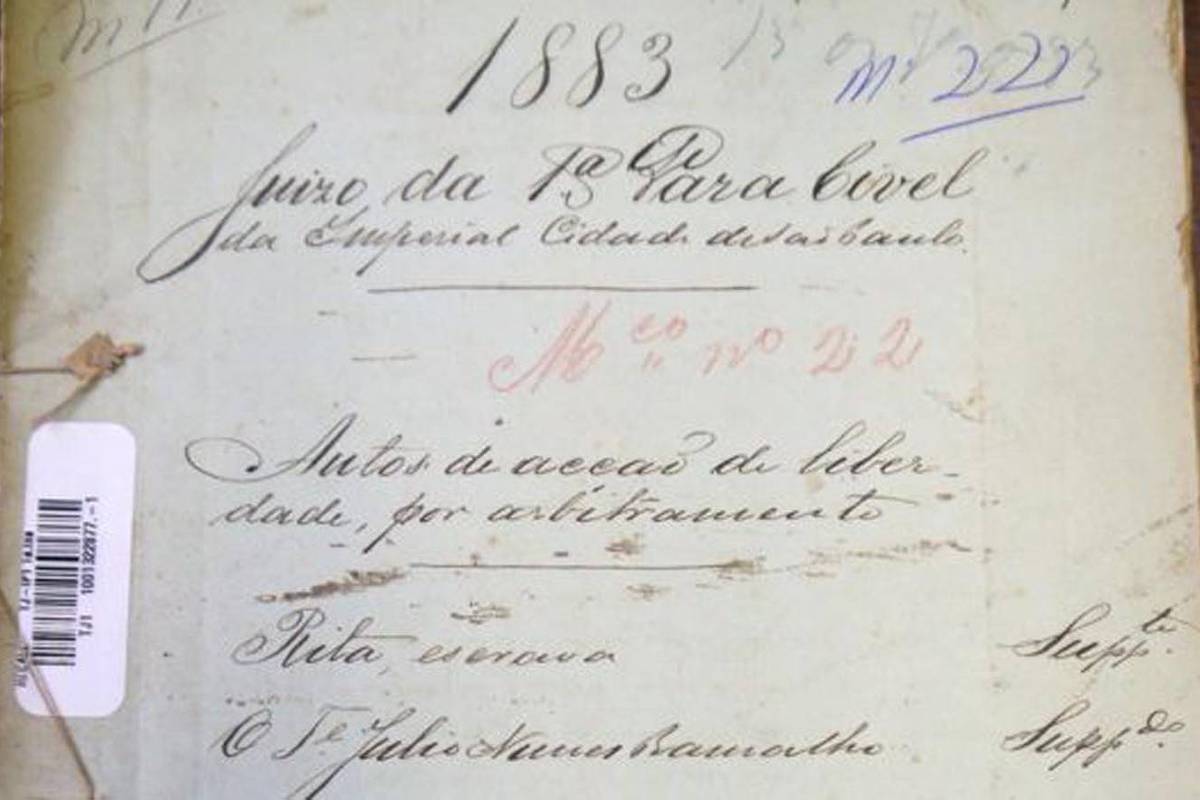 1883
Nº 22
Juizo da 1ª Vara Civel
da Imperial Cidade de São Paulo
Mço nº 22
Autos de acção de liber-
dade, por arbitramento
Rita, escrava Suppte.
O Te Julio Nunes Ramalho Suppdo.
TJ1 1001322877.-1